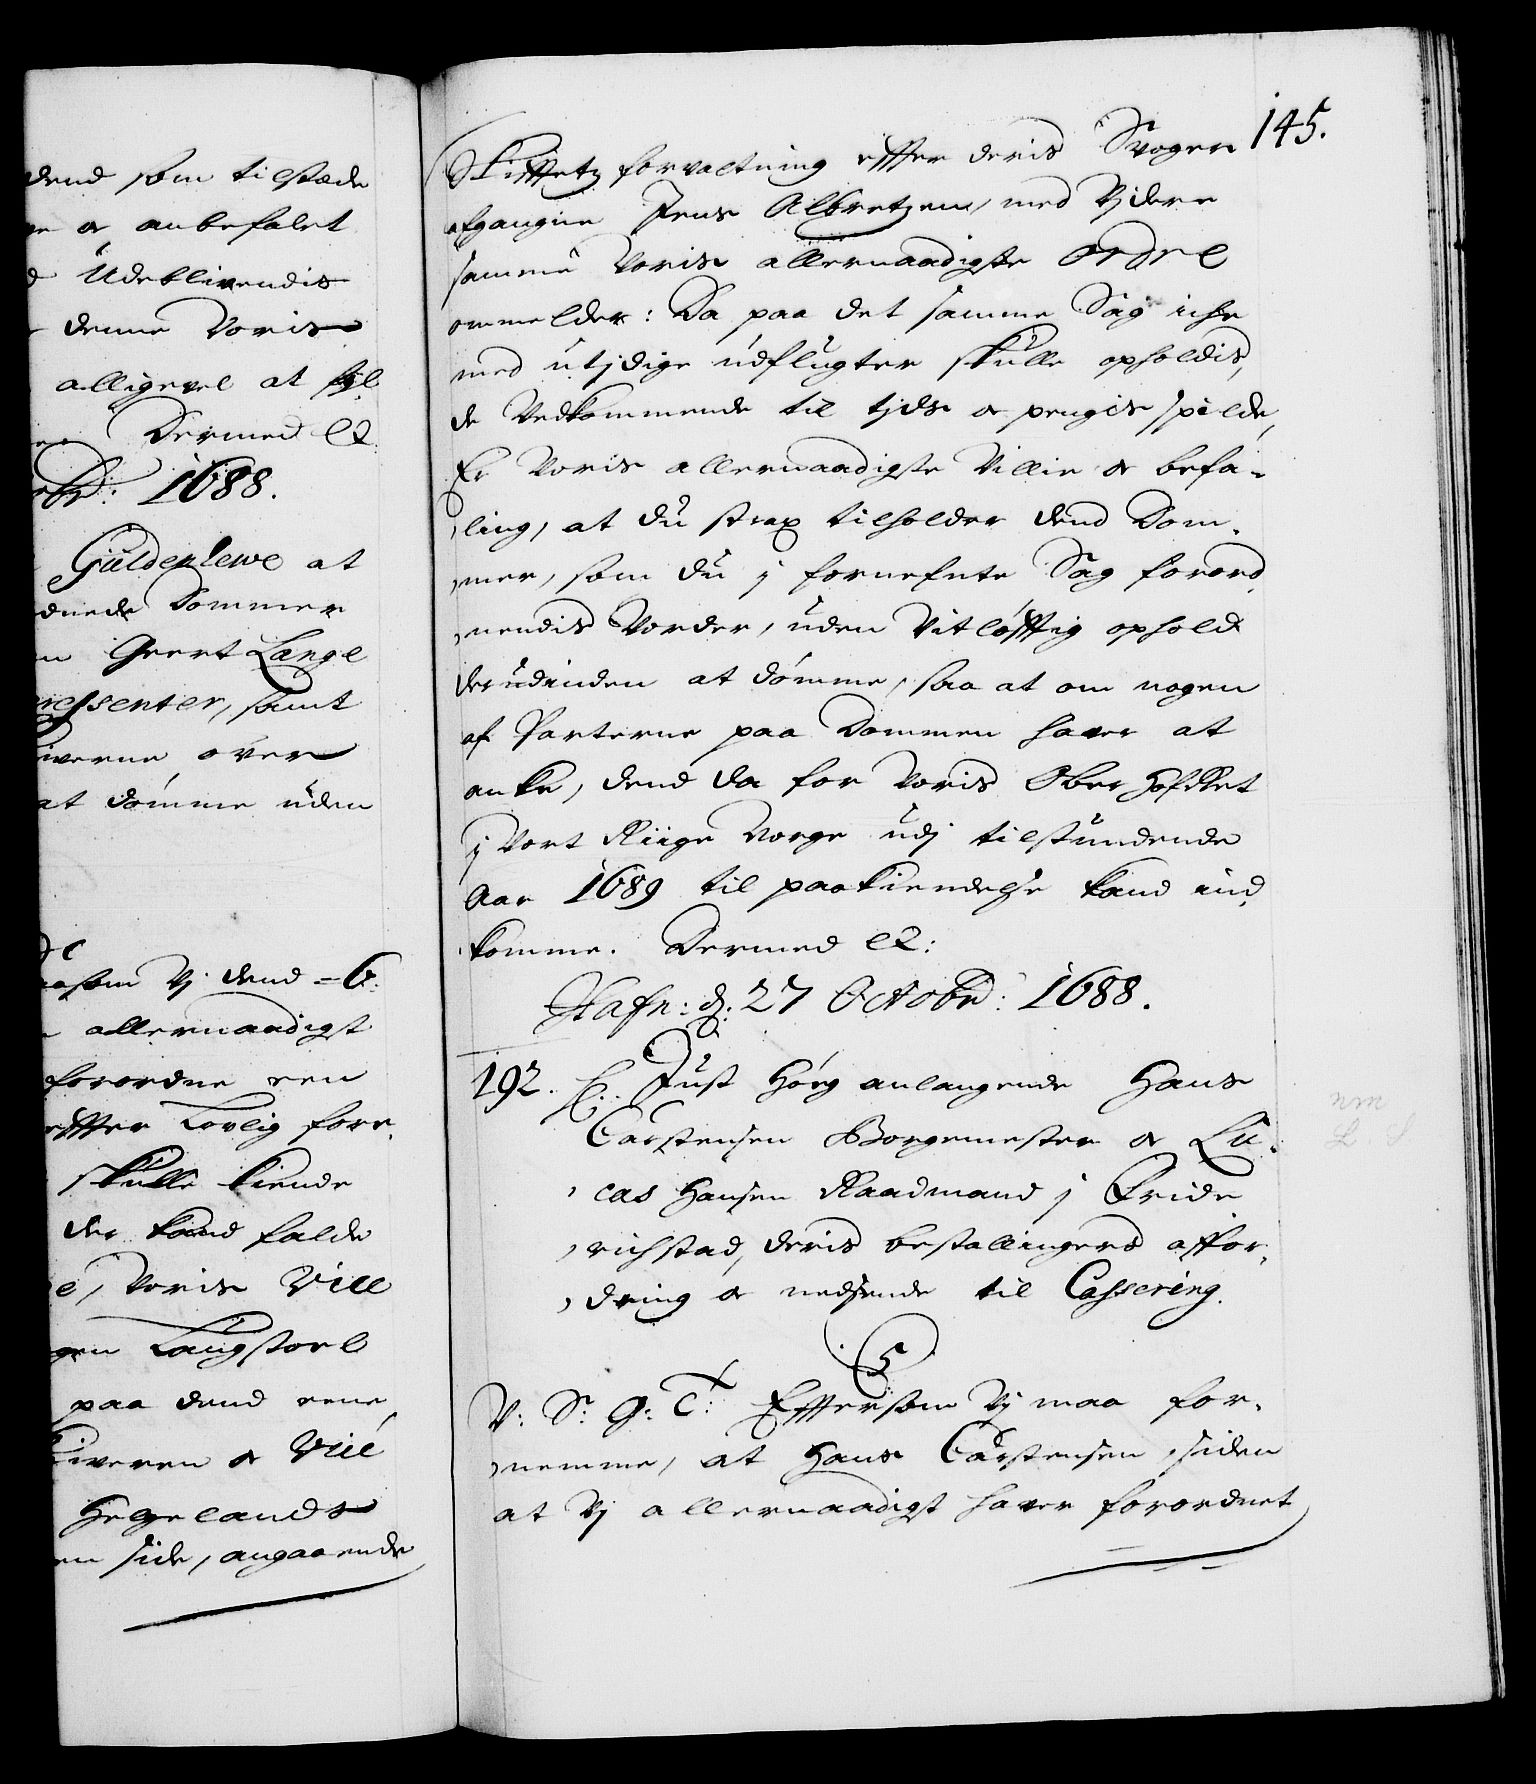 dend som tilstæde
or anbefalet
Udeblivendis
denne Voris
alligevel at fyl
Dermed etz
obr: 1688.
Güldenlewe at
dnede Dommer
Geert Lange
ressenter, samt
iverne over
at dömme uden
som Vj dend = G:
allernaadigst
forordne een
effter Lovlig fore,
skulle kiende
der kand falde
Voris Vill
gen Langstorl
paa dend eene
iveren or Vill
Hegelands
en side, angaaende
145.
Skifftetz forvaltning effter deris Svoger
afgangne Jens Albretzen, med Videre
samme Voris allernaadigste Ordre
ommelder: Da paa det samme Sag iche
med utjdige udflugter skulle opholdis,
de Vedkommende til tjds or pengis spilde,
Er Voris allernaadigste Villie or befa-
ling, at du strax tilholder dend Dom-
mer, som du j fornefnte Sag forord
nendis Vorder, uden Vitløfftig ophold
derudinden at dömme, saa at om nogen
af Parterne paa Dommen haver at
anke, dend da for Voris Ober Hofret
j Vort Riige Norge udj tilstundende
Aar 1689 til paakiendelse kand ind
komme. Dermed etz:
Hafn: d: 27 Octobr: 1688.
192. Just Höeg anlangende Hans
Carstensen Borgemester or Lu-
cas Hansen Raadmand j Fride
richstad, deris bestallingers affor,
dring or nedsende til Cassering.
C5
V: S: G: T: Efftersom Vj maa for-
nemme, at Hans Carstensen, siden
at Vj allernaadigst haver forordnet